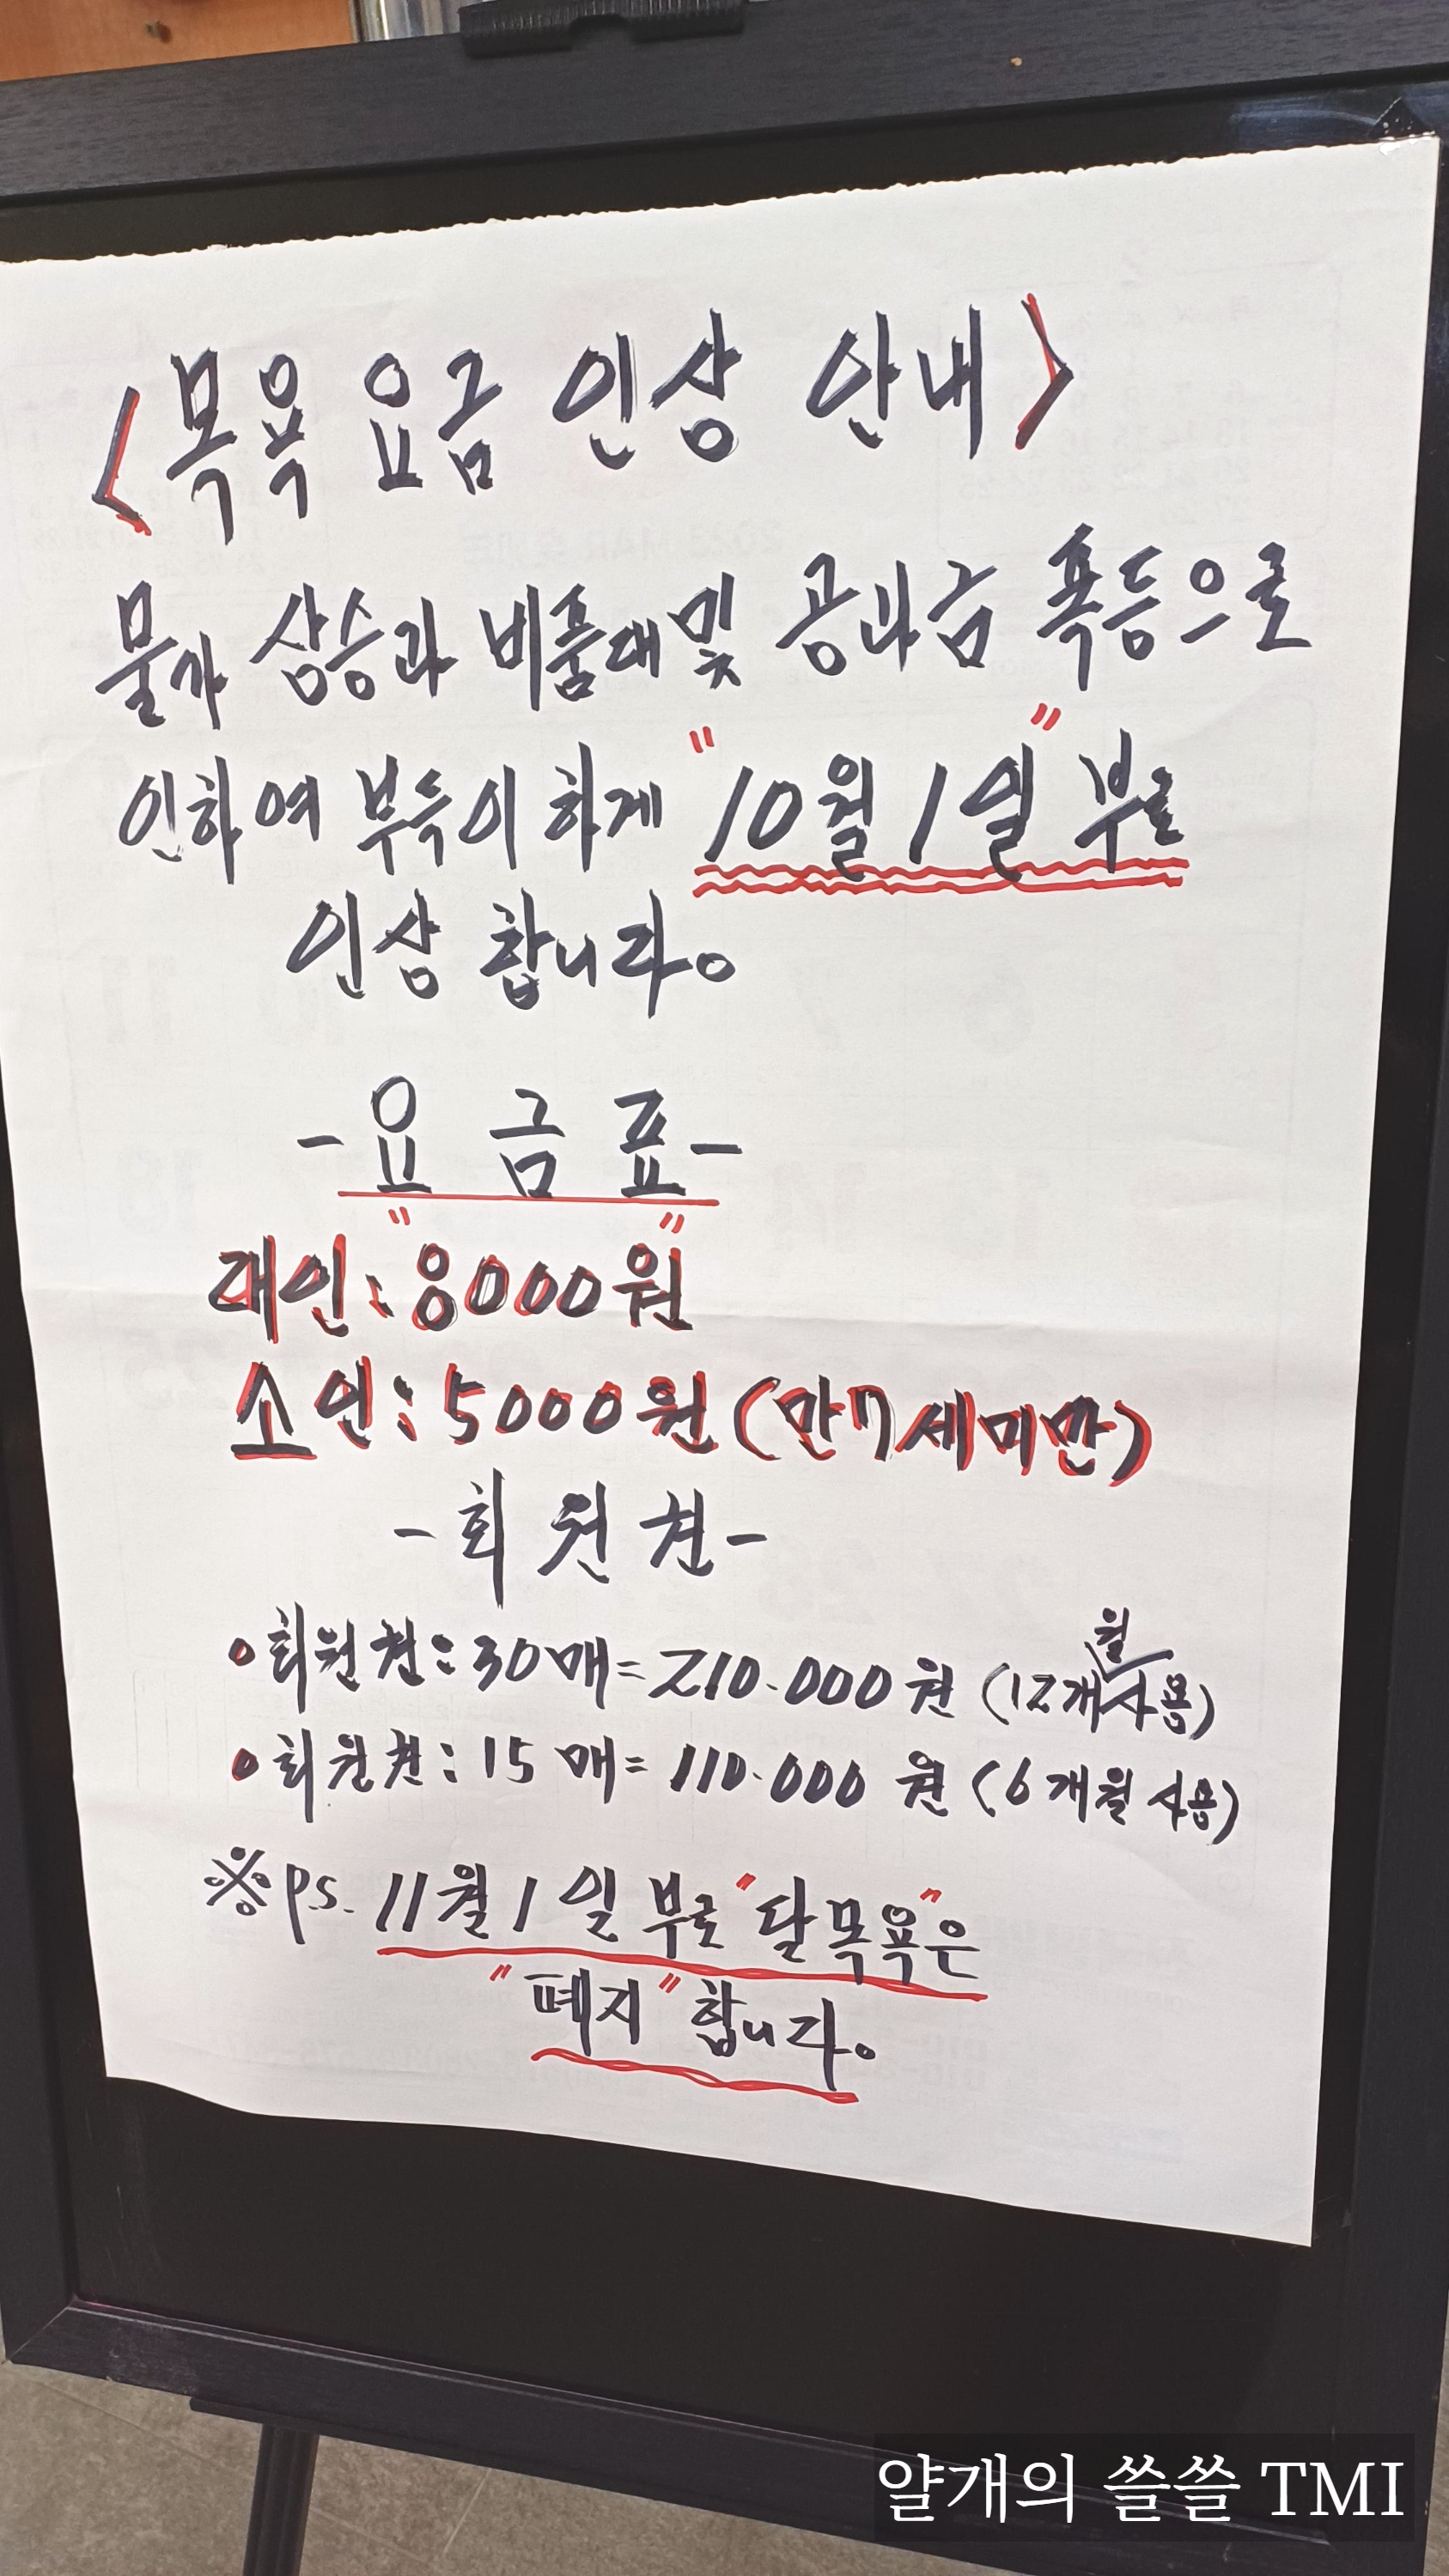 <목욕 요금 인상 안내>
물가 상승과 비품대 및 공과금 폭등으로
인하여 부득이 하게 "10월 1일" 부로
인상 합니다.
-요 금 표-
대인: "8000원"
소인: 5000원 (만7세미만)
-회 원 권-
•회원권: 30매=210.000원 (12개월사용)
•회원권: 15매=110.000원 (6개월 사용)
※ p.s. 11월 1일 부로 "달목욕"은
"폐지" 합니다.
얄개의 쓸쓸 TMI